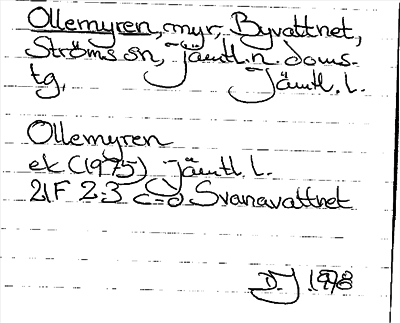 Ollemyren, myr, Byvattnet,
Ströms sn, Jämtl. n. doms-
tg, Jämtl. l.
Ollemyren
ek (1975) Jämtl. l.
21F 2-3 c-d Svanavattnet
D.J 1978